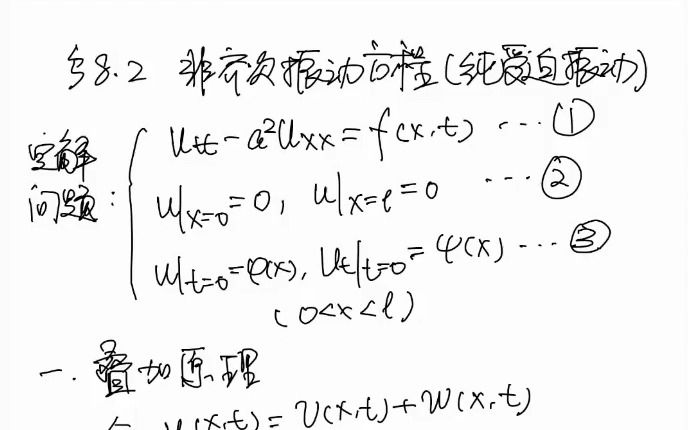 §8.2 非齐次振动方程(纯受迫振动)
定解问题: utt - a²uxx = f(x,t) ... ①
u|x=0 = 0, u|x=l = 0 ... ②
u|t=0 = φ(x), ut|t=0 = ψ(x) ... ③
(0<x<l)
一. 叠加原理
令 u(x,t) = v(x,t) + w(x,t)